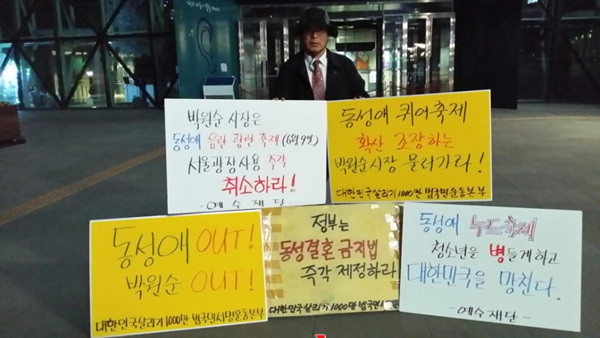 박원순 시장은
동성애 음란 광란 축제 (6월9일)
서울광장사용 즉각
취소하라!
- 예수재단
동성애 퀴어축제
확산 조장하는
박원순시장 물러가라!
대한민국살리기1000만 범국민운동본부
동성애 OUT!
박원순 OUT!
대한민국살리기1000만 범국민서명운동본부
정부는
동성결혼 금지법
즉각 제정하라
대한민국살리기1000만 범국민서명
동성애 누드축제
청소년을 병들게하고
대한민국을 망친다.
- 예수재단 -